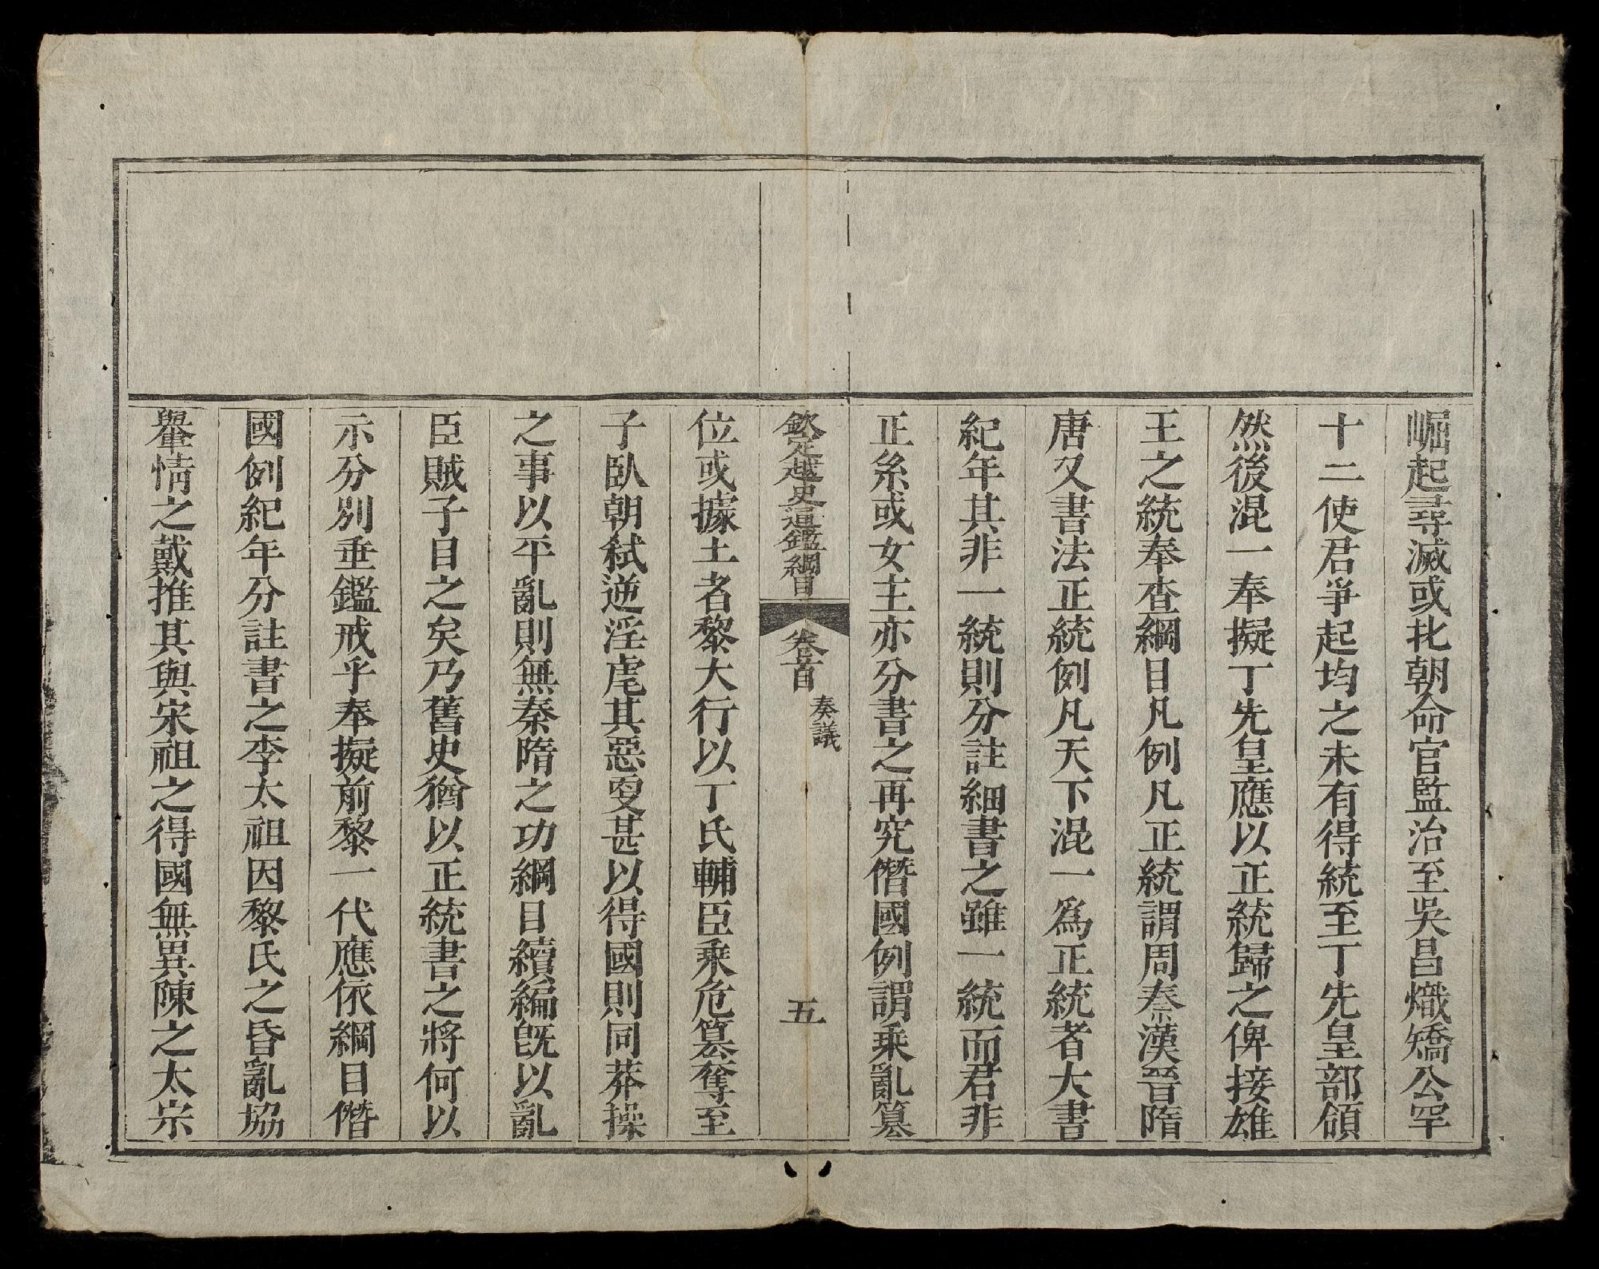 崛起尋滅或北朝命官監治至吳昌熾矯公罕
十二使君爭起均之未有得統至丁先皇部領
然後混一奉擬丁先皇應以正統歸之俾接雄
王之統奉查綱目凡例凡正統謂周秦漢晉隋
唐又書法正統例凡天下混一爲正統者大書
紀年其非一統則分註細書之雖一統而君非
正系或女主亦分書之再究僭國例謂乗亂篡
欽定越史通鑑綱目 卷首 奏議 五
位或據土者黎大行以丁氏輔臣乗危篡奪至
子臥朝弑逆淫虐其惡更甚以得國則同莽操
之事以平亂則無秦隋之功綱目續編旣以亂
臣賊子目之矣乃舊史猶以正統書之將何以
示分別垂鑑戒乎奉擬前黎一代應依綱目僭
國例紀年分註書之李太祖因黎氏之昏亂協
羣情之戴推其與宋祖之得國無異陳之太宗